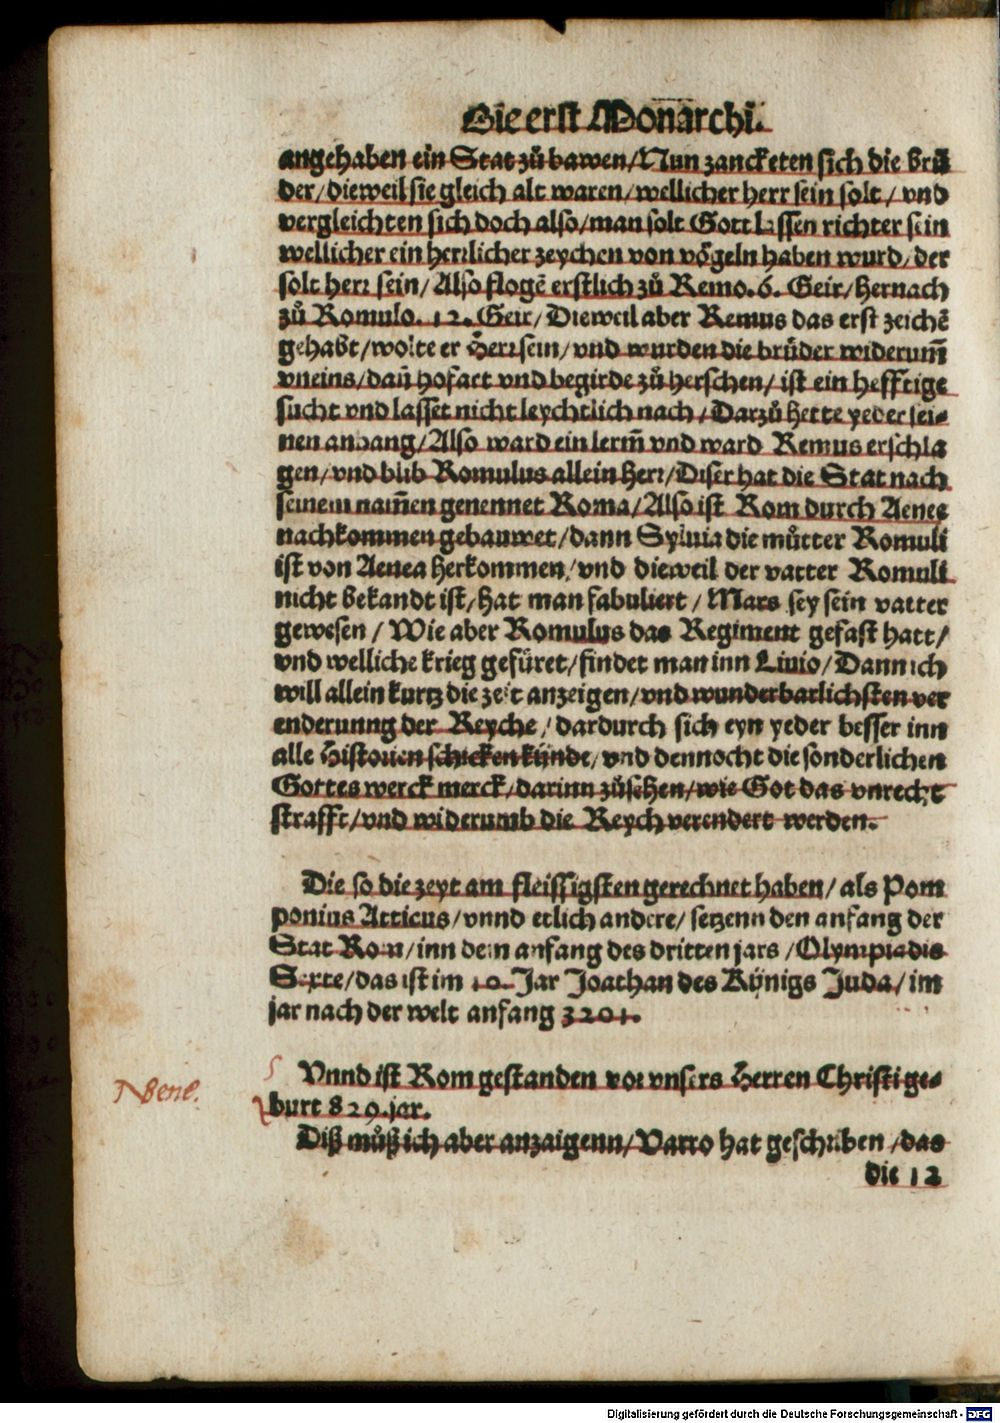 Die erst Monarchi.
angehaben ein Stat zů bawen/Nun zancketen sich die brů
der/dieweil sie gleich alt waren/wellicher herr sein solt/vnd
vergleichten sich doch also/man solt Gott lassen richter sein
wellicher ein herrlicher zeychen von vőgeln haben wurd/der
solt herr sein/Also flogē erstlich zů Remo.6. Geir/hernach
zů Romulo.12.Geir/Dieweil aber Remus das erst zeichē
gehabt/wolte er Herr sein/vnd wurden die brůder widerum̄
vneins/dañ hofart vnd begirde zů herschen/ist ein hefftige
sucht vnd lasset nicht leychtlich nach/Darzů hette yeder sei-
nen anhang/Also ward ein lerm̄ vnd ward Remus erschla
gen/vnd blib Romulus allein herr/Diser hat die Stat nach
seinem nam̄en genennet Roma/Also ist Rom durch Aenee
nachkommen gebauwet/dann Sylvia die můtter Romuli
ist von Aenea herkommen/vnd dieweil der vatter Romuli
nicht bekandt ist/hat man fabuliert/Mars sey sein vatter
gewesen/Wie aber Romulus das Regiment gefast hatt/
vnd welliche krieg gefüret/findet man inn Liuio/Dann ich
will allein kurtz die zeit anzeigen/vnd wunderbarlichsten ver
enderunng der Reyche/dardurch sich eyn yeder besser inn
alle Historien schicken künde/vnd dennocht die sonderlichen
Gottes werck merck/darinn zůsehen/wie Got das vnrecht
strafft/vnd widerumb die Reych verendert werden.
Die so die zeyt am fleissigsten gerechnet haben/als Pom
ponius Atticus/vnnd etlich andere/setzenn den anfang der
Stat Rom/inn dem anfang des dritten jars/Olympiadis
Sexte/das ist im 10. Jar Joathan des Künigs Juda/im
jar nach der welt anfang 3201.
Vnnd ist Rom gestanden vor vnsers Herren Christi ge-
Nbene.
burt 829.jar.
Diß můß ich aber anzaigenn/Varro hat geschriben/das
die 12
Digitalisierung gefördert durch die Deutsche Forschungsgemeinschaft - DFG